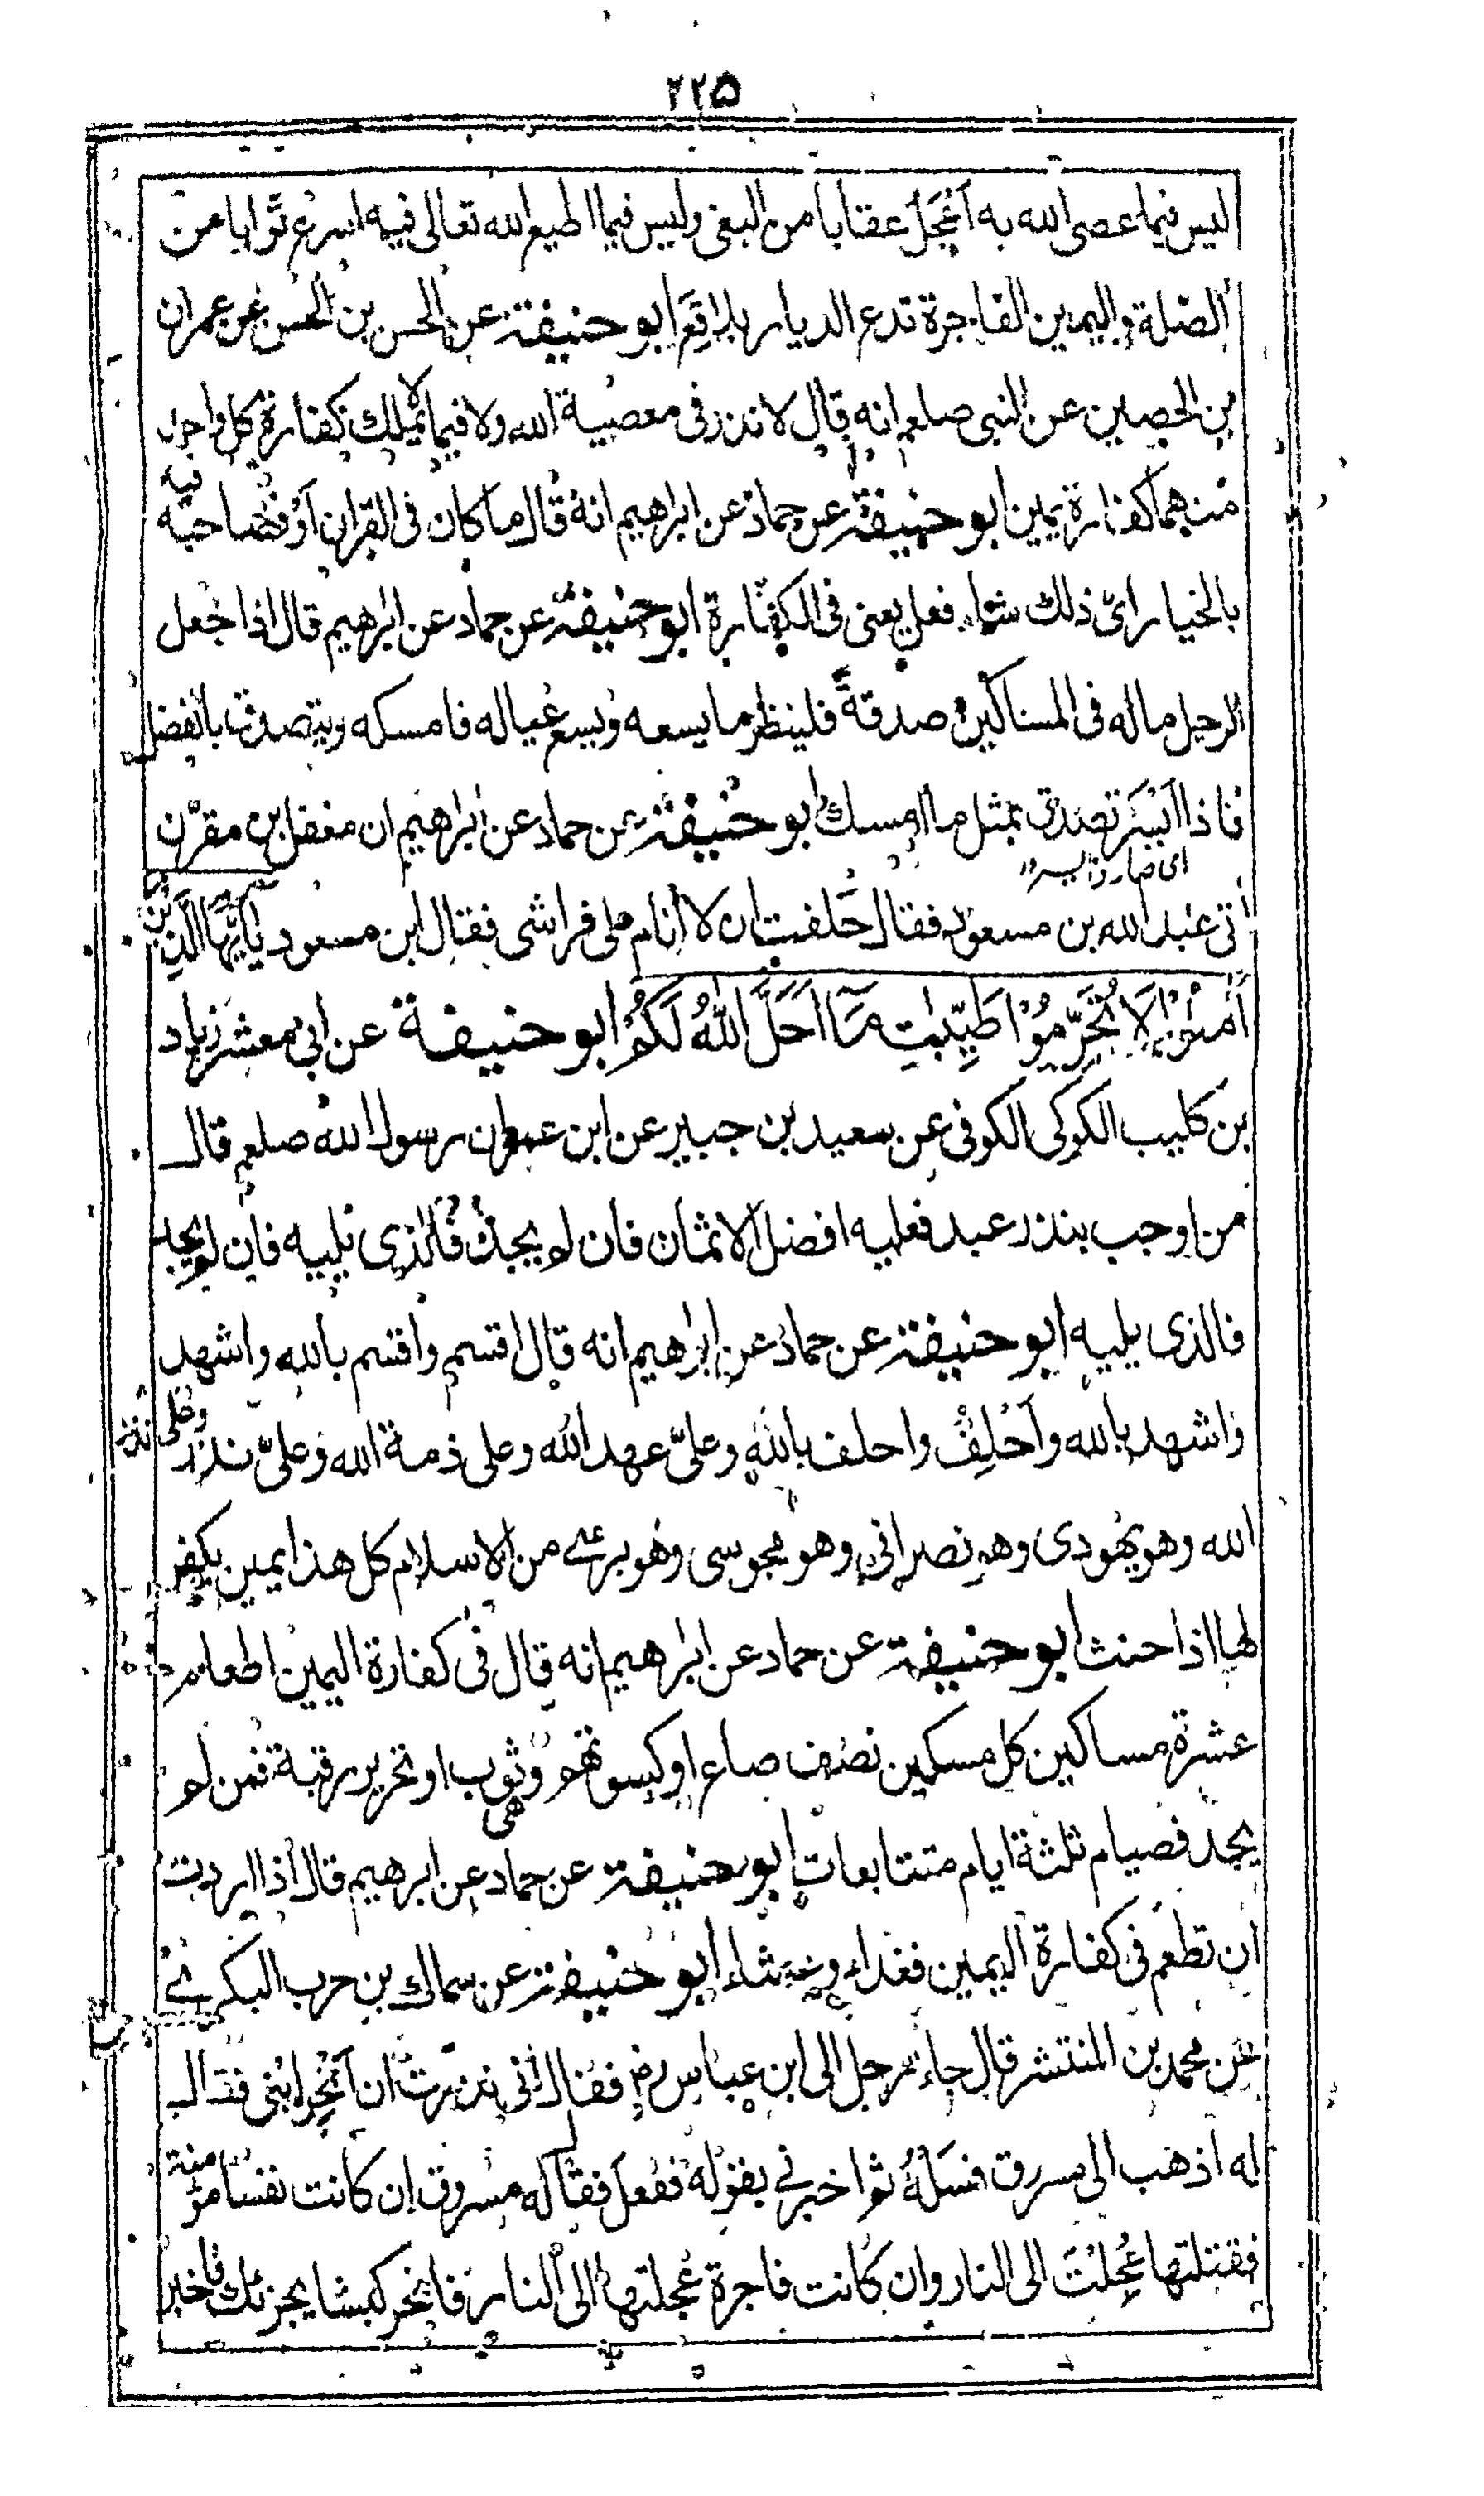 ٢٢٥
ليس فيما عصى الله به اَعْجَلُ عقابا من البغى وليس فيما اطيع الله تعالى فيه اسرع ثوابا من
الصلة واليمين الفاجرة تدع الديار بلاقِعَ ابو حنيفة عن الحسن بن الحسن عن عمران
بن الحصين عن النبى صلعم انه قال لا نذر فى معصية الله ولا فيما لا يملك كفارة كل واحد
منهما كفارة يمين ابو حنيفة عن حماد عن ابراهيم انه قال ما كان فى القران اَوْ فصاحبه فيه
بالخيار اىّ ذلك شاء فعل يعنى فى الكفارة ابو حنيفة عن حماد عن ابراهيم قال اذا جعل
الرجل ماله فى المساكين صدقةً فلينظر ما يسعه ويسع عياله فامسكه ويتصدق بالفضل
فاذا اَيْسَرَ تصدق بمثل ما امسك ابو حنيفة عن حماد عن ابراهيم ان معقل بن مقرّن
اى صار ذا يسر
اتى عبد الله بن مسعود فقال حلفت ان لا انام على فراشى فقال ابن مسعود يٰاَيُّهَا الَّذِينَ
اٰمَنُوْا لَا تُحَرِّمُوْا طَيِّبٰتِ مَآ اَحَلَّ اللّٰهُ لَكُمْ ابو حنيفة عن ابى معشر زياد
بن كليب الكوكى الكوفى عن سعيد بن جبير عن ابن عمر ان رسول الله صلعم قال
من اوجب بنذر عبد فعليه افضل الاثمان فان لم يجد فالذى يليه فان لم يجد
فالذى يليه ابو حنيفة عن حماد عن ابراهيم انه قال اقسم واقسم بالله واشهد
واشهد بالله واَحْلِفُ واحلف بالله وعلىّ عهد الله وعلى ذمة الله وعلىّ نذر وعلى نذر
الله وهو يهودى وهو نصرانى وهو مجوسى وهو برئ من الاسلام كل هذا يمين يكفر
لها اذا حنث ابو حنيفة عن حماد عن ابراهيم انه قال فى كفارة اليمين اطعام
عشرة مساكين كل مسكين نصف صاع او كسوتهم وهى ثوب او تحرير رقبة فمن لم
يجد فصيام ثلثة ايام متتابعات ابو حنيفة عن حماد عن ابرهيم قال اذا اردت
ان تطعم فى كفارة اليمين فغداء وعشاء ابو حنيفة عن سماك بن حرب البكرى
عن محمد بن المنتشر قال جاء رجل الى ابن عباس رض فقال انى نذرت ان اَنْحَرَ ابنى فقال
له اذهب الى مسروق فسَلْهُ ثم اخبرنى بقوله ففعل فقال له مسروق ان كانت نفسا مؤمنة
فقتلتها عُجِلْتَ الى النار وان كانت فاجرة عجلتها الى النار فانحر كبشا يجزئك فاخبر